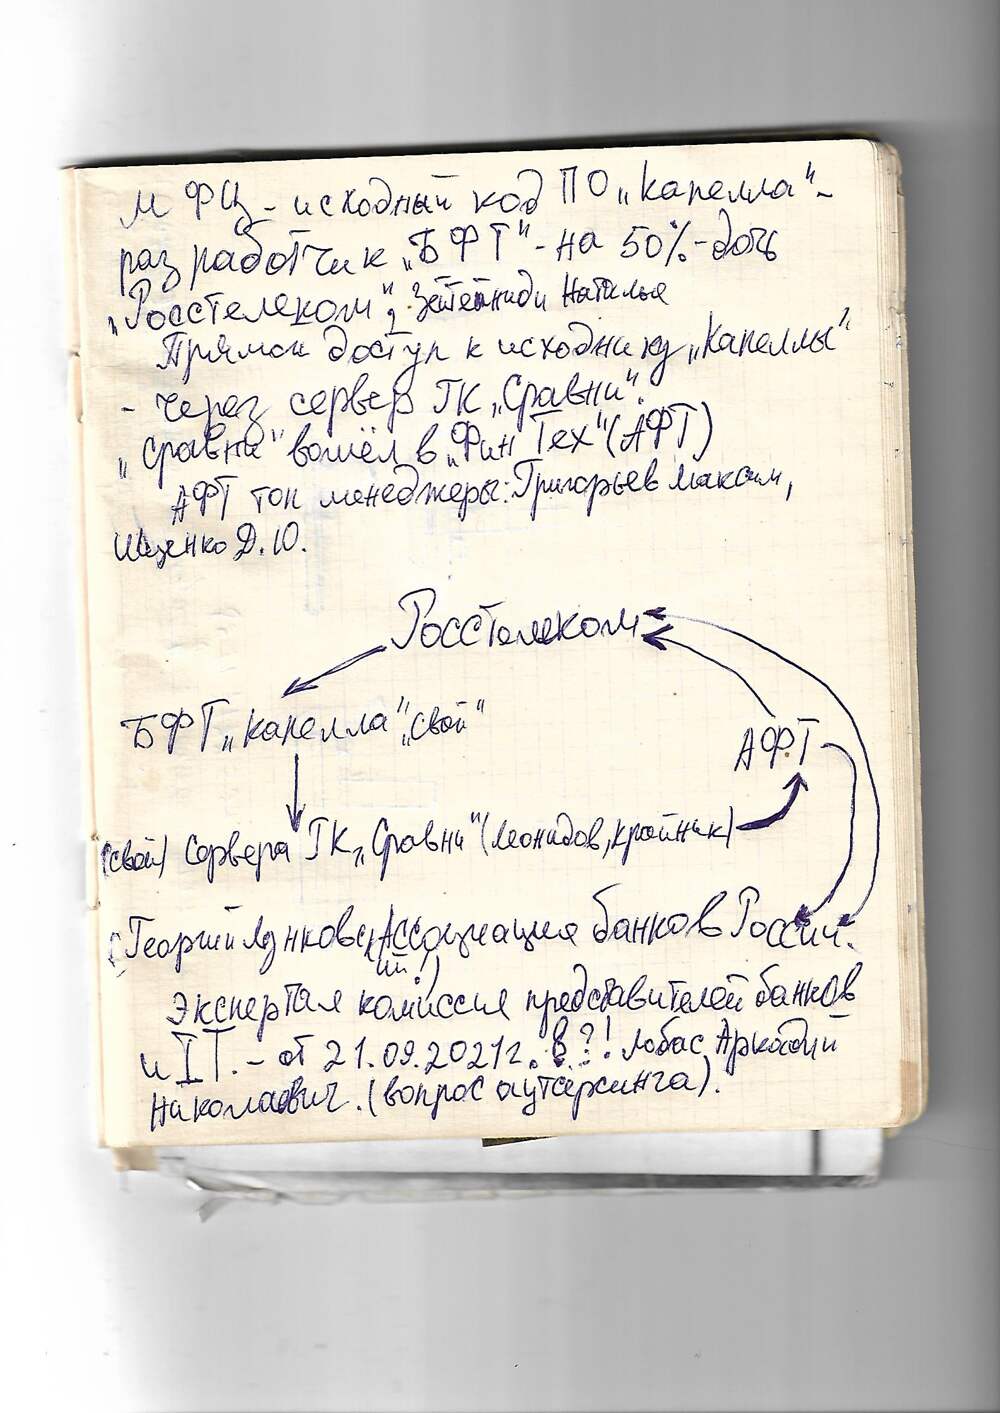 МФЦ - исходный код ПО „Капелла" -
разработчик „БФТ" - на 50% - дочь
„Росстелеком", Наталья
Прямой доступ к исходнику „Капеллы"
- через сервер ГК „Сравни".
„Сравни" вошёл в „ФинТех" (АФТ)
АФТ топ менеджеры: Григорьев Максим,
Ищенко Д.Ю.
Росстелеком
БФТ „Капелла" „свой"
АФТ
(свой) Сервера ГК „Сравни" (Леонидов, Кройник)
(Георгий Лунковский!) Ассоциация банков России.
Экспертая комиссия представителей банков
и IT. - от 21.09.2021г. в?! Лобас Аркадий
Николаевич. (вопрос аутсерсинга).